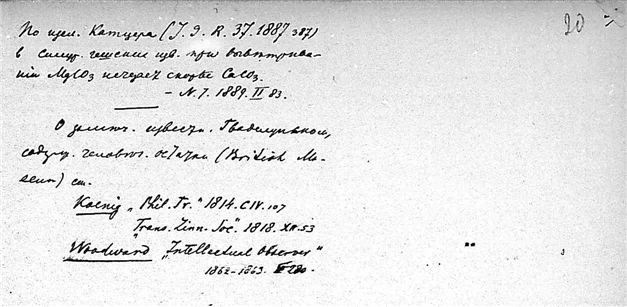 20
По изсл. Катцера (J. g. R. 37. 1887 387)
в силур. чешских изв. при выветрива-
нии MgCO3 исчезает скорее CaCO3.
— N. J. 1889. II 83.
О известн. Гваделупском,
содерж. человеч. остатки (British Mu-
seum) см.
Koenig „Phil. Tr.“ 1814. CIV. 107
„Trans. Linn. Soc“ 1818. XII. 53
Woodward „Intellectual Observer“
1862-1863.